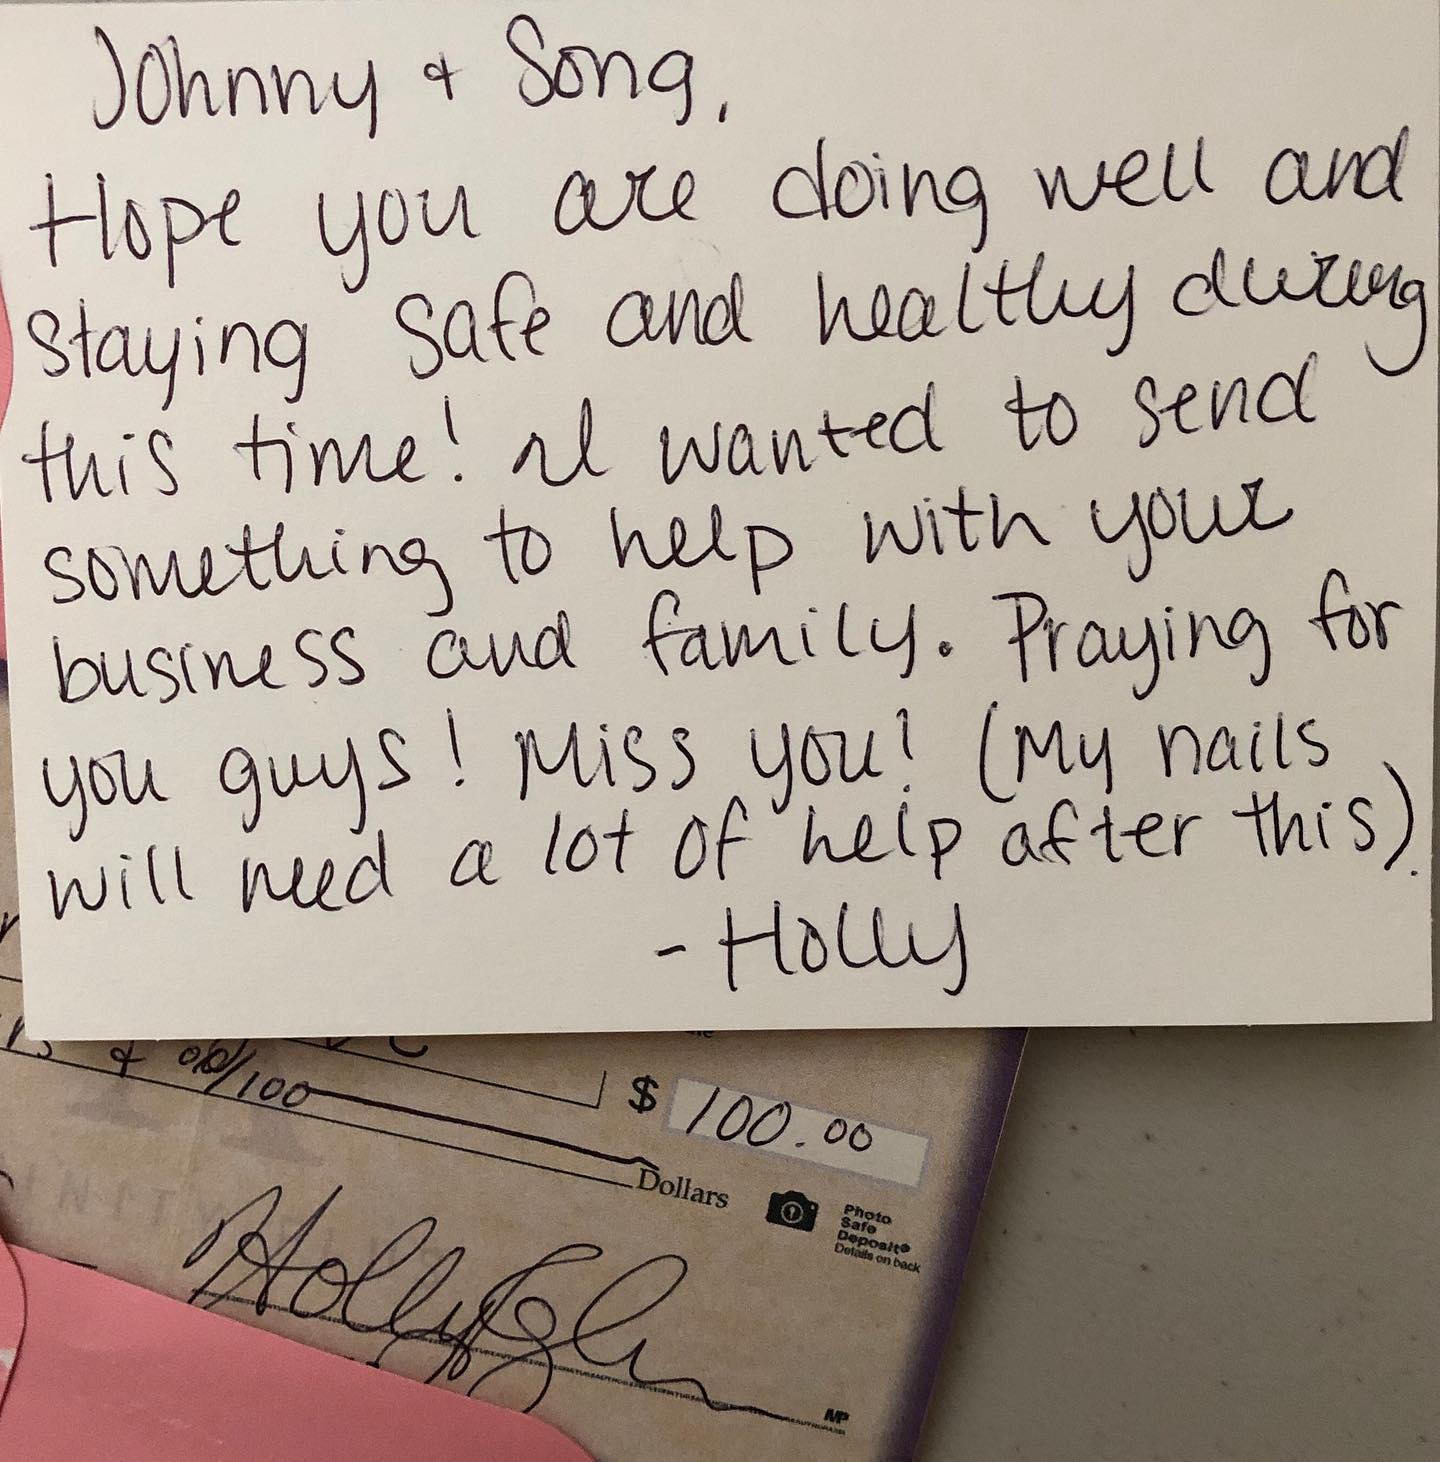 Johnny & Song,
Hope you are doing well and
staying safe and healthy during
this time! I wanted to send
something to help with your
business and family. Praying for
you guys! Miss you! (My nails
will need a lot of help after this).
- Holly
& 00/100
$ 100.00
Dollars
Photo
Safe
Deposit®
Details on back
Holly
MP